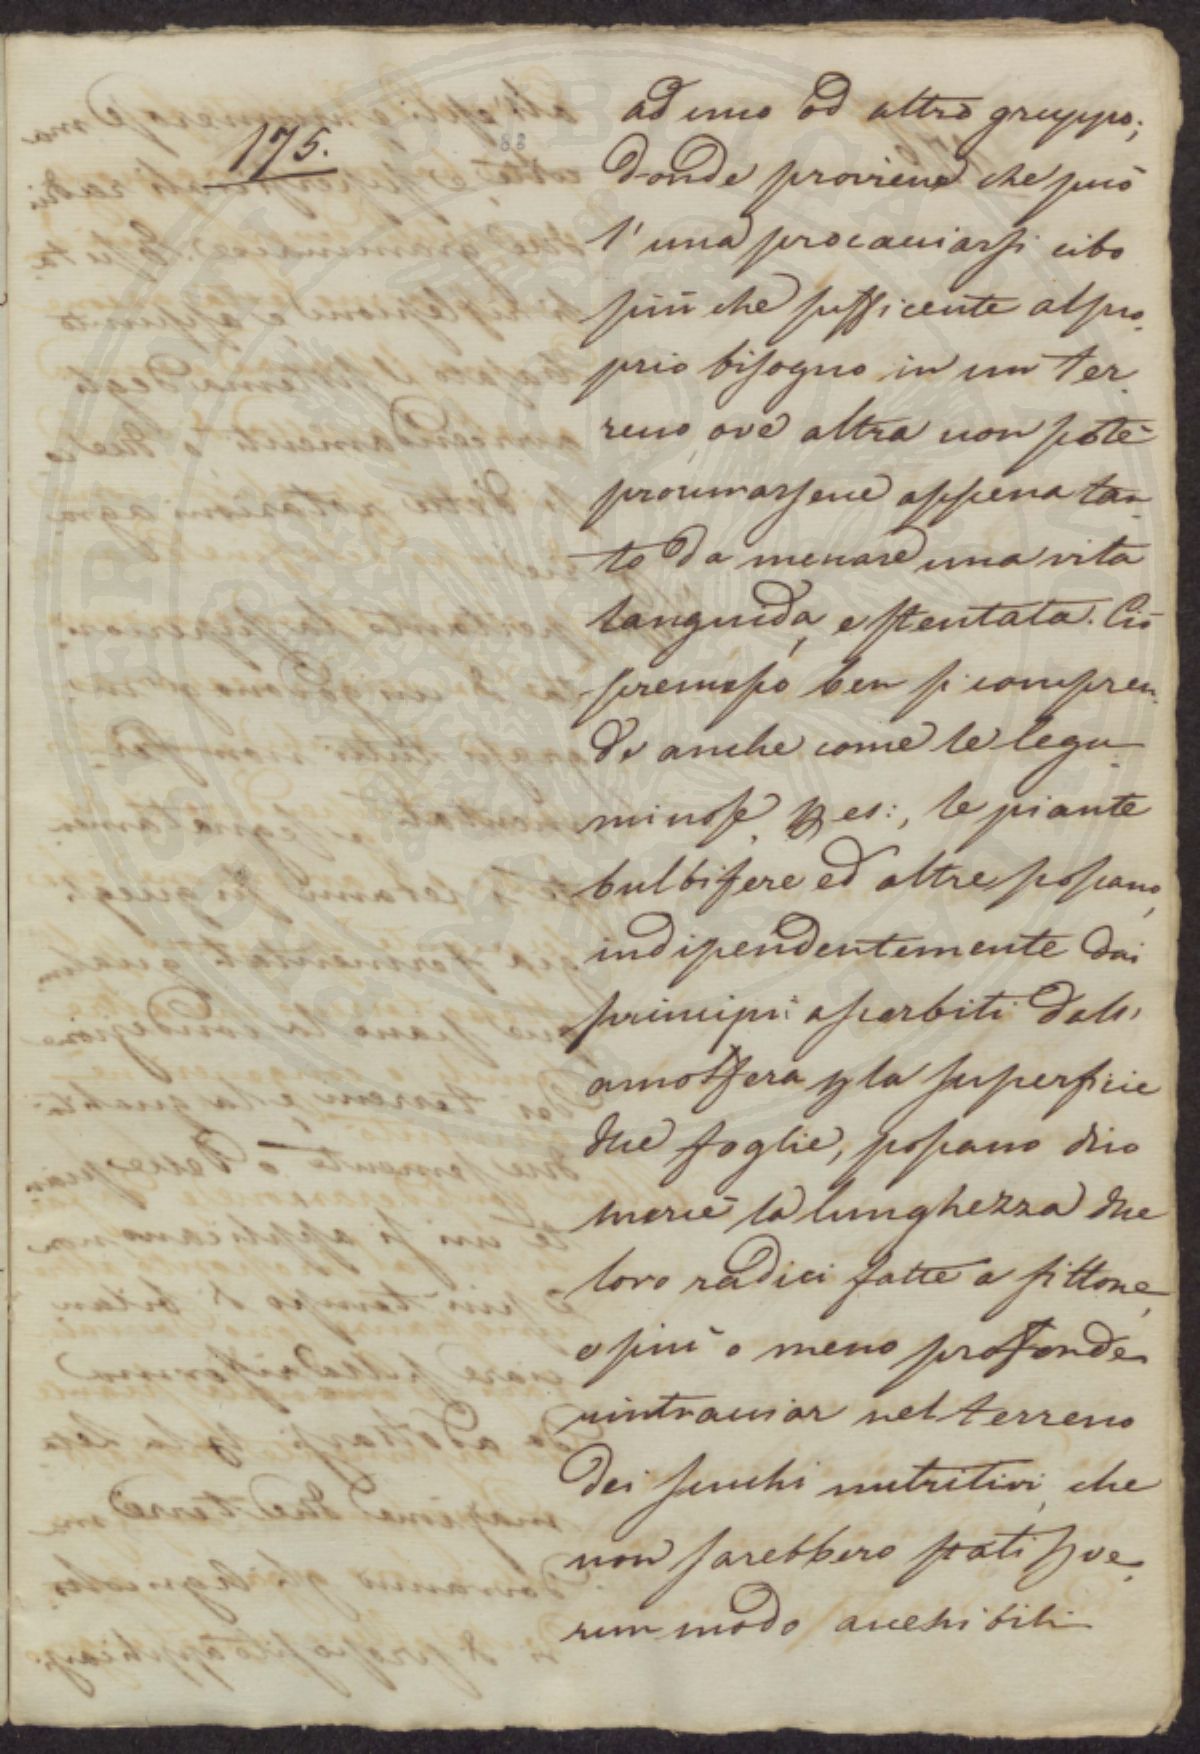 175.
88
ad uno od altro gruppo;
donde proviene che può
l'una procacciarsi cibo
più che sufficente al pro-
prio bisogno in un ter-
reno, ove altra non potè
procurarsene appena tan-
to da menare una vita
languida, e stentata. Ciò
premesso ben si compren-
de anche come le legu-
minose, p es:, le piante
bulbifere ed altre possano,
indipendentemente dai
principii assorbiti dall'
amosfera p la superficie
dlle foglie, possano dico
mercè la lunghezza dlle
loro radici fatte a fittone,
e più o meno profonde
rintracciar nel terreno
dei succhi nutritivi, che
non sarebbero stati p ve-
run modo accessibili